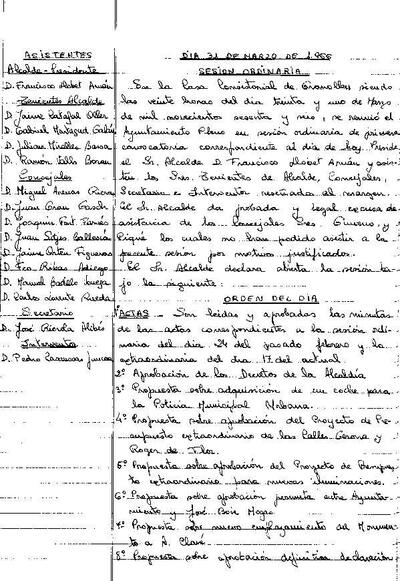 ASISTENTES
Alcalde-Presidente
D. Francisco Llobet
Tenientes Alcalde
D. Jaime Oller
D. Gabriel
D. Julian Miralles
D. Ramón
Concejales
D. Miguel Arenas Riera
D. Juan Grau Gasch
D. Joaquin Font
D. Juan
D. Jaime Figueras
D. Fco Ribas
D. Manuel
D. Carlos Rueda
Secretario
D. José
Interventor
D. Pedro
DIA 31 DE MARZO DE 1.966
SESION ORDINARIA
En la Casa Consistorial de Granollers siendo
las veinte horas del dia treinta y uno de Marzo
de mil novecientos sesenta y seis, se reunió el
Ayuntamiento Pleno en sesión ordinaria de primera
convocatoria correspondiente al dia de hoy. Preside
el Sr. Alcalde D. Francisco Llobet y asis-
ten los Sres. Tenientes de Alcalde, Concejales,
Secretario e Interventor reseñados al margen.
El Sr. Alcalde da probada y legal excusa de
asistencia de los Concejales Sres. y
los cuales no han podido asistir a la
presente sesión por motivos justificados.
El Sr. Alcalde declara abierta la sesión ba-
jo la siguiente.
ORDEN DEL DIA
ACTAS - Son leidas y aprobadas las minutas
de las actas correspondientes a la sesión ordi-
naria del dia 24 del pasado febrero y la
extraordinaria del dia 17 del actual.
2º Aprobación de los Decretos de la Alcaldía
3º Propuesta sobre adquisición de un coche para
la Policia Municipal Urbana.
4º Propuesta sobre aprobación del Proyecto de Pre-
supuesto extraordinario de las Calles Gerona y
Roger de Flor.
5º Propuesta sobre aprobación del Proyecto de Presupues-
to extraordinario para nuevas iluminaciones.
6º Propuesta sobre aprobación permuta entre Ayunta-
miento y José
7º Propuesta sobre nuevo emplazamiento del Monumen-
to a A. Clavé
8º Propuesta sobre aprobación definitiva declaración